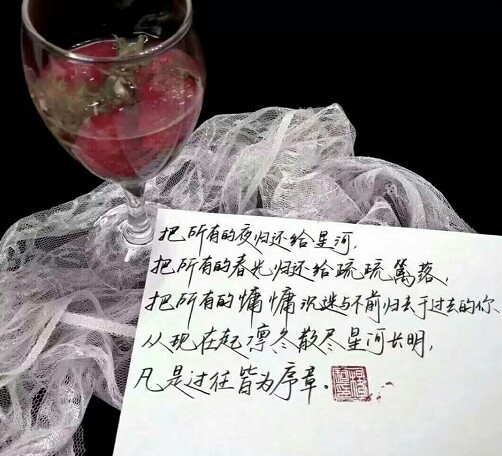 把所有的夜归还给星河，
把所有的春光归还给疏疏篱落，
把所有的慵慵沉迷与不前归去于过去的你、
从现在起凛冬散尽星河长明，
凡是过任皆为序章。